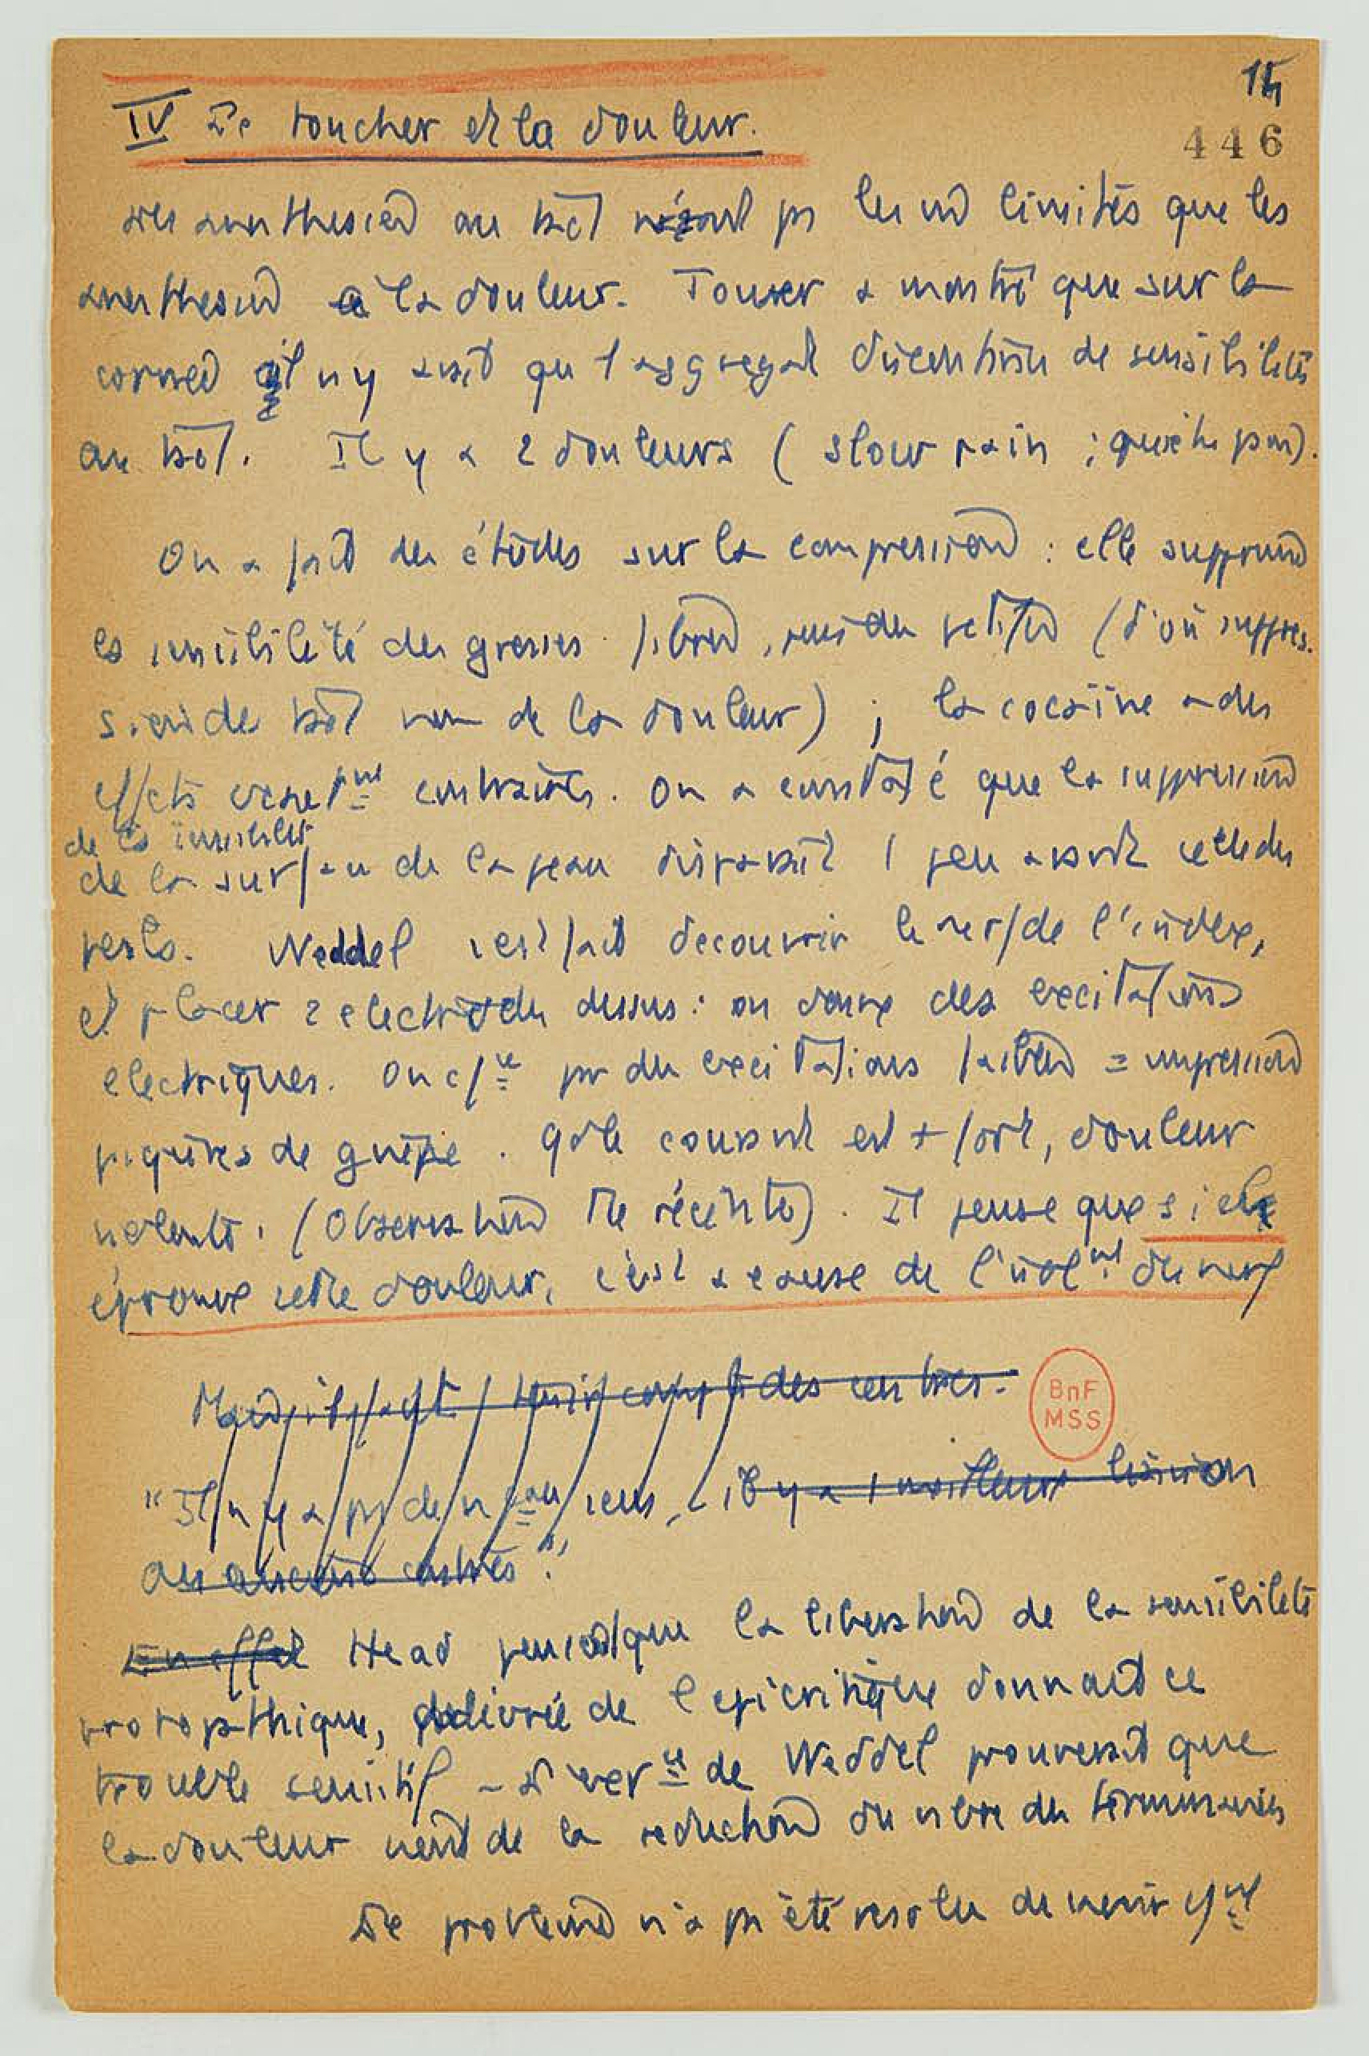 14
446
IV Le toucher et la douleur.
Les anesthesies au tact n'ont ps les md limités que les
anesthesies à la douleur. Tower a montré que sur la
cornée il n'y avait qu'1 aggregat de sensibilité
au tact. Il y a 2 douleurs ( slow pain ; quick pain).
On a fait des études sur la compression : elle supprime
la sensibilité des grosses fibres, puis des petites (d'où suppres.
sion du tact non de la douleur) ; la cocaïne a des
effets exactmt contraires. On a constaté que la suppression
de la sensibilité
de la surface de la peau disparaît 1 peu avant celle des
poils. Weddel s'est fait decouvrir le nerf de l'index,
et placer 2 electrodes dessus : on donne des excitations
electriques. On c/ve pr des excitations faibles = impression
piqûres de guêpe. Qd le courant est + fort, douleur
violente. (Observation Tr récente). Il pense que si elle
éprouve cette douleur, c'est a cause de l'isolmt du nerf
Mais il faut tenir compte des centres.
"Il n'y a ps de nveau sens, il y a 1 meilleure liaison
aux anciens centres".
En effet Head pensait que la liberation de la sensibilité
protopathique, delivrée de l'epicritique donnait ce
trouble sensitif - L'exerce de Weddel prouverait que
la douleur vient de la reduction du nbre des terminaisons
Le probleme n'a ps été resolu